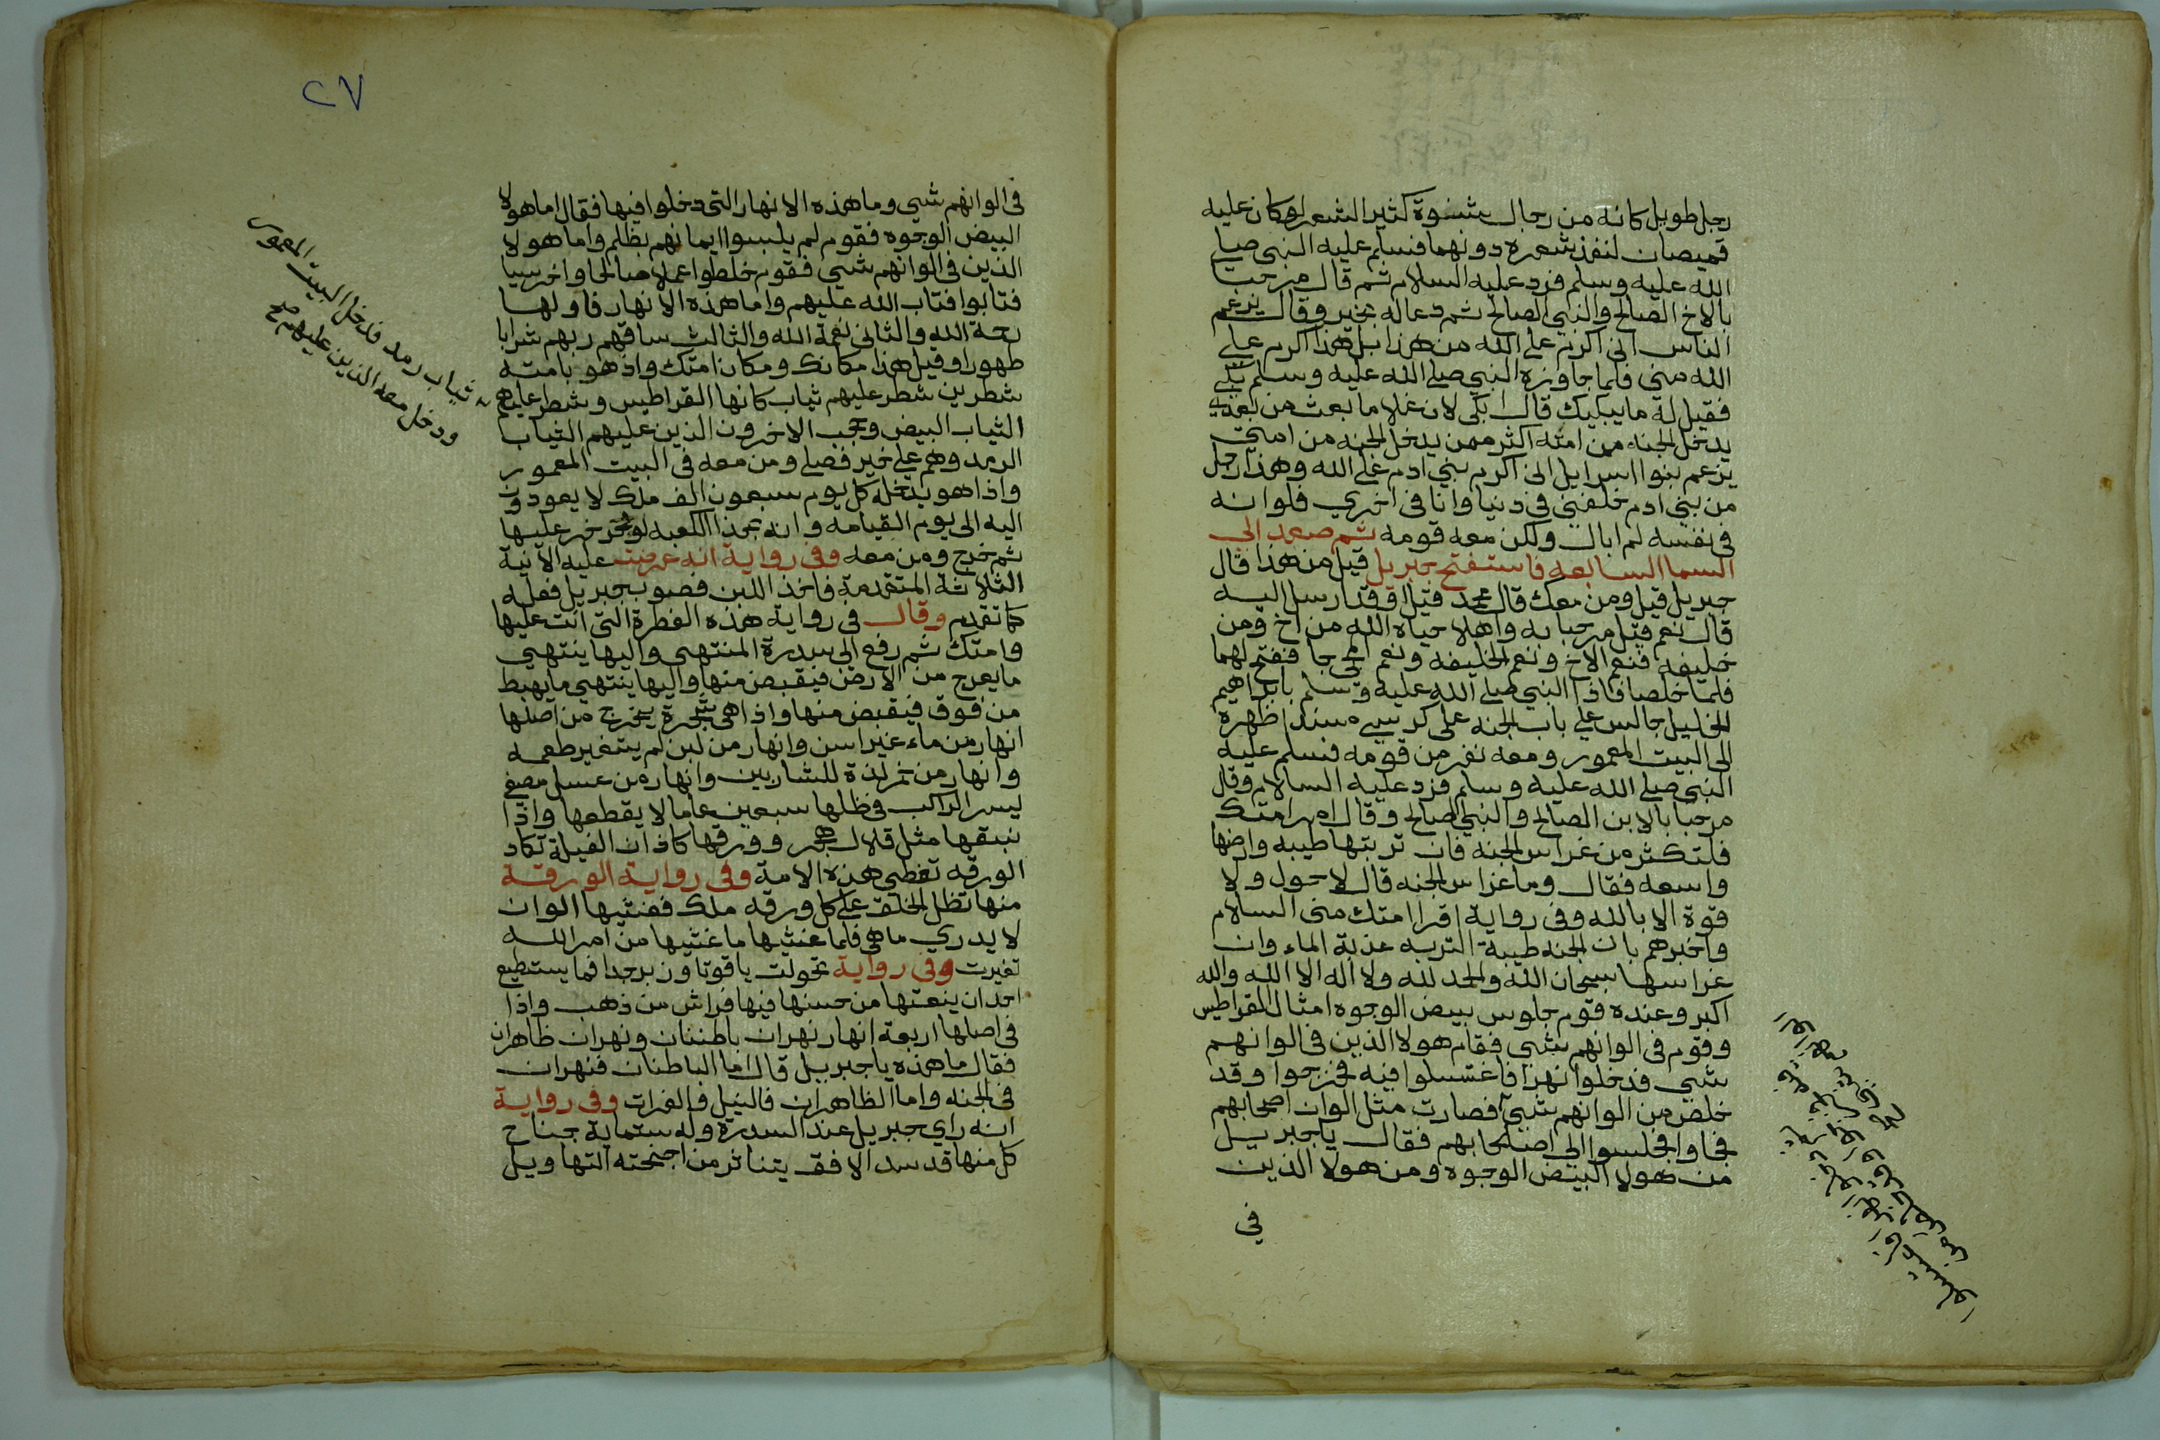 رجل طويل كانه من رجال شنوة كثير الشعر لو كان عليه
قميصان لنفذ شعره دونهما فسلم عليه النبي صلى
الله عليه وسلم فرد عليه السلام ثم قال مرحبا
بالاخ الصالح والنبي الصالح ثم دعا له بخير وقال يزعم
الناس اني اكرم على الله من هذا بل هذا اكرم على
الله مني فلما جاوزه النبي صلى الله عليه وسلم بكى
فقيل له ما يبكيك قال ابكي لان غلاما بعث من بعدي
يدخل الجنه من امته اكثر ممن يدخل الجنه من امتي
يزعم بنوا اسرايل اني اكرم بني ادم على الله وهذا رجل
من بني ادم خلفني في دنيا وانا في اخري فلو انه
في نفسه لم ابال ولكن معه قومه ثم صعد الى
السما السابعه فاستفتح جبريل قيل من هذا قال
جبريل قيل ومن معك قال محمد قيل اوقد ارسل اليه
قال نعم قيل مرحبا به واهلا حياه الله من اخ ومن
خليفه فنعم الاخ ونعم الخليفه ونعم المجي جا ففتح لهما
فلما خلصا فاذا النبي صلى الله عليه وسلم بابراهيم
الخليل جالس على باب الجنه على كرسي مسندا ظهره
الى البيت المعمور ومعه نفر من قومه فسلم عليه
النبي صلى الله عليه وسلم فرد عليه السلام وقال
مرحبا بالابن الصالح والنبي الصالح وقال امر امتك
فلتكثر من غراس الجنه فان تربتها طيبه وارضها
واسعه فقال وما غراس الجنه قال لا حول ولا
قوة الا بالله وفي رواية اقرا امتك مني السلام
واخبرهم بان الجنه طيبة التربه عذبة الماء وان
غراسها سبحان الله والحمد لله ولا اله الا الله والله
اكبر وعنده قوم جلوس بيض الوجوه امثال القراطيس
وقوم في الوانهم شي فقام هولا الذين في الوانهم
شي فدخلوا نهرا فاغتسلوا فيه فخرجوا وقد
خلص من الوانهم شي فصارت مثل الوان اصحابهم
فجاوا فجلسوا الى اصحابهم فقال يا جبريل
من هولا البيض الوجوه ومن هولا الذين
في
٢٧
في الوانهم شي وما هذه الانهار التي دخلوا فيها فقال اما هولا
البيض الوجوه فقوم لم يلبسوا ايمانهم بظلم واما هولا
الذين في الوانهم شي فقوم خلطوا عملا صالحا واخر سيا
فتابوا فتاب الله عليهم واما هذه الانهار فاولها
رحمة الله والثاني نعمة الله والثالث سقاهم ربهم شرابا
طهورا وقيل هذا مكانك ومكان امتك واذ هو بامته
شطرين شطر عليهم ثياب كانها القراطيس وشطر عليهم
ثياب رمد فدخل البيت المعمور
ودخل معه الذين عليهم صح
الثياب البيض وحجب الاخرون الذين عليهم الثياب
الرمد وهم على خير فصلى ومن معه في البيت المعمور
واذا هو يدخله كل يوم سبعون الف ملك لا يعودون
اليه الى يوم القيامه وانه بحذا الكعبه لو خر خر عليها
ثم خرج ومن معه وفي رواية انه عرضت عليه الانية
الثلاثة المتقدمة فاخذ اللبن فصوب جبريل فعله
كما تقدم وقال في رواية هذه الفطرة التي انت عليها
وامتك ثم رفع الى سدرة المنتهى واليها ينتهي
ما يعرج من الارض فيقبض منها واليها ينتهي ما يهبط
من فوق فيقبض منها واذا هي شجرة يخرج من اصلها
انهار من ماء غير اسن وانهار من لبن لم يتغير طعمه
وانهار من خمر لذة للشاربين وانهار من عسل مصفى
يسر الراكب في ظلها سبعين عاما لا يقطعها واذا
نبقها مثل قلال هجر وورقها كاذان الفيلة تكاد
الورقه تغطي هذه الامة وفي رواية الورقة
منها تظل الخلق على كل ورقه ملك فغشيها الوان
لا يدري ما هي فلما غشيها ما غشيها من امر الله
تغيرت وفي رواية تحولت ياقوتا وزبرجدا فما يستطيع
احد ان ينعتها من حسنها فيها فراش من ذهب واذا
في اصلها اربعة انهار نهران باطنان ونهران ظاهران
فقال ما هذه يا جبريل قال اما الباطنان فنهران
في الجنه واما الظاهران فالنيل والفرات وفي رواية
انه راي جبريل عند السدرة وله ستماية جناح
كل منها قد سد الافق يتناثر من اجنحته التهاويل